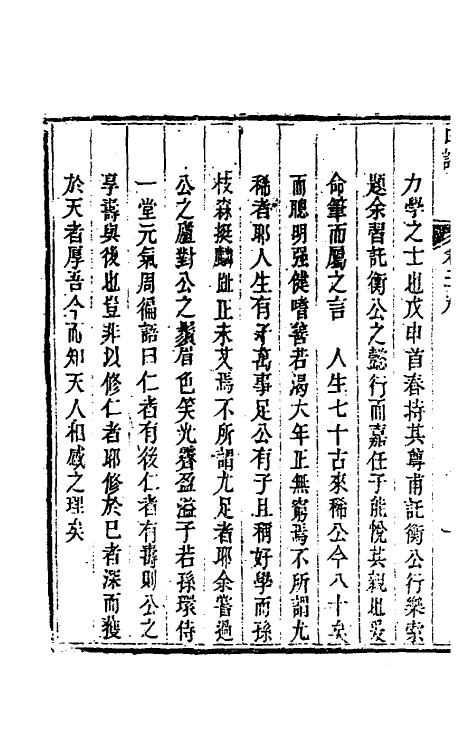 力學之士也戊申首春持其尊甫託衡公行樂索
題余習託衡公之懿行而嘉任子能悅其親也爰
命筆而屬之言　人生七十古來稀公今八十矣
而聰明强健嗜善若渴大年正無窮焉不所謂尤
稀者耶人生有子萬事足公有子且稱好學而孫
枝森挺麟趾正未艾焉不所謂尤足者耶余嘗過
公之廬對公之鬚眉色笑光霽盈溢子若孫環侍
一堂元氣周徧語曰仁者有後仁者有壽則公之
享壽與後也豈非以修仁者耶修於己者深而獲
於天者厚吾今而知天人相感之理矣